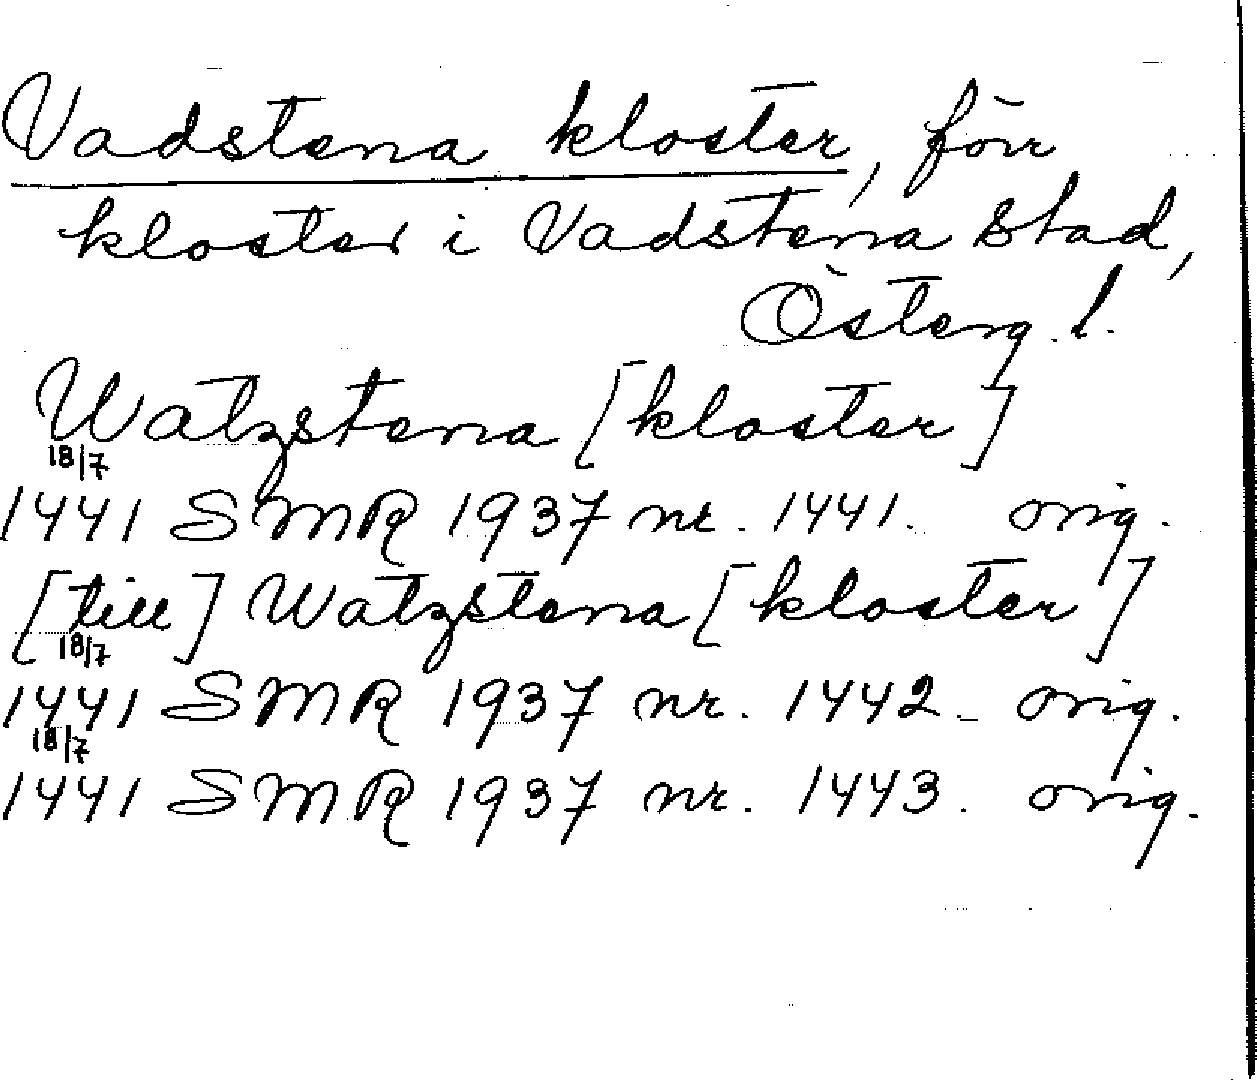 Vadstena kloster, förr
kloster i Vadstena stad,
Österg. l.
Watzstena [kloster]
18/7
1441 SMR 1937 nr. 1441. orig.
[till] Watzstena [kloster]
18/7
1441 SMR 1937 nr. 1442. orig.
18/7
1441 SMR 1937 nr. 1443. orig.